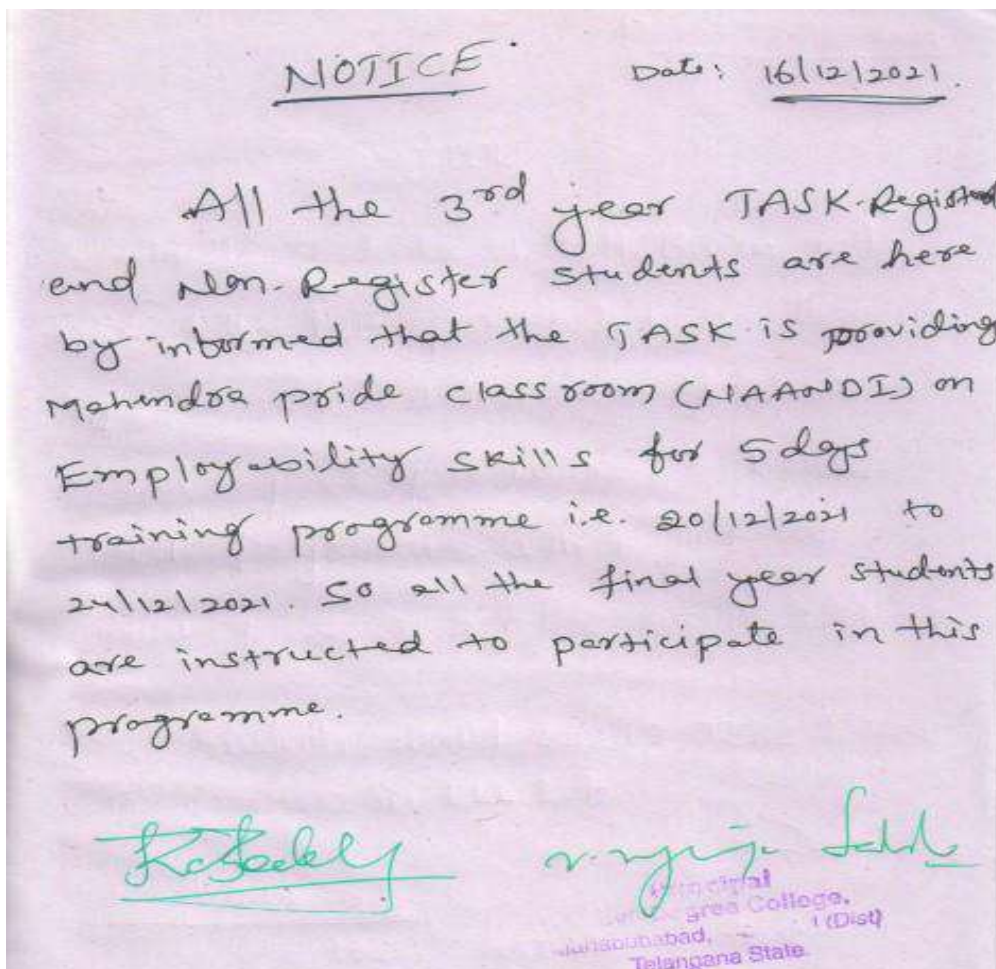 NOTICE Date: 16/12/2021.
All the 3rd year TASK-Registered
and Non-Register students are here
by informed that the TASK is providing
Mahendra pride class room (NAANDI) on
Employability skills for 5 days
training programme i.e. 20/12/2021 to
24/12/2021. So all the final year students
are instructed to participate in this
programme.
Principal
gree College,
(Dist)
Telangana State.